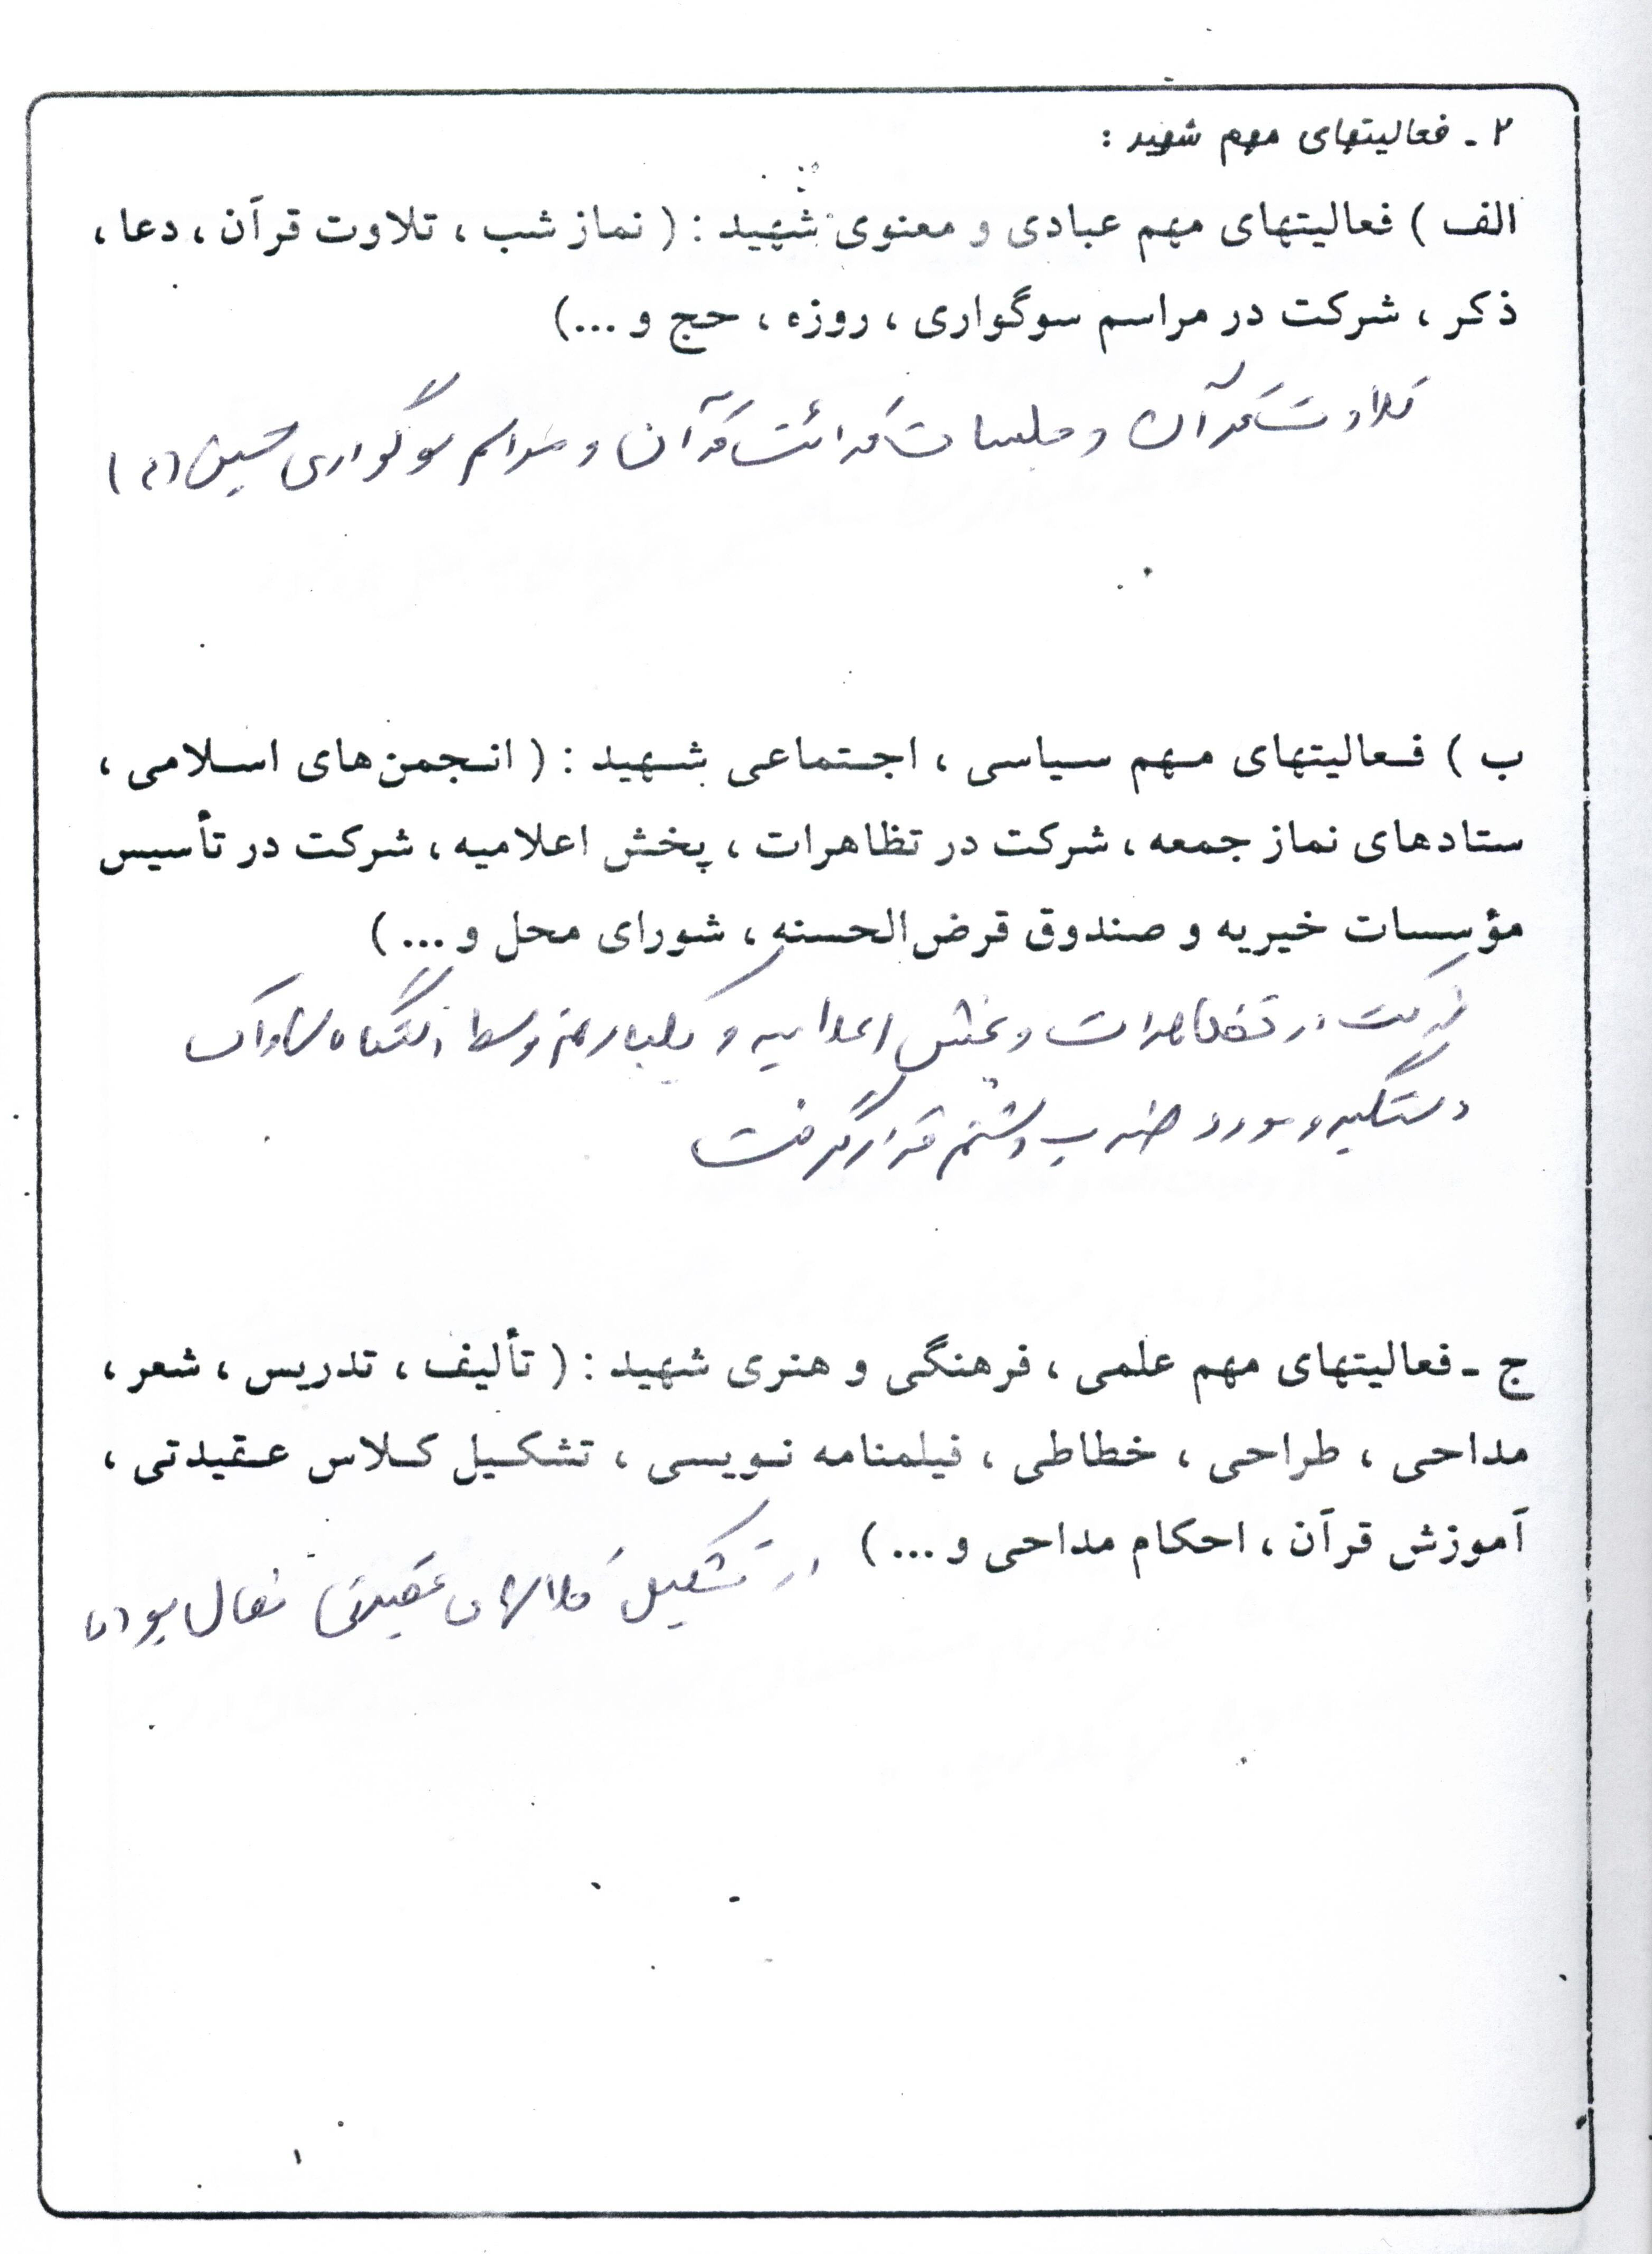 ۲ - فعالیتهای مهم شهید :
الف ) فعالیتهای مهم عبادی و معنوی شهید : ( نماز شب ، تلاوت قرآن ، دعا ،
ذکر ، شرکت در مراسم سوگواری ، روزه ، حج و ...)
تلاوت قرآن و جلسات قرائت قرآن و مراسم سوگواری حسین (ع)
ب ) فعالیتهای مهم سیاسی ، اجتماعی شهید : ( انجمن‌های اسلامی ،
ستادهای نماز جمعه ، شرکت در تظاهرات ، پخش اعلامیه ، شرکت در تأسیس
مؤسسات خیریه و صندوق قرض‌الحسنه ، شورای محل و ... )
شرکت در تظاهرات و پخش اعلامیه و یکبار هم توسط دستگاه ساواک
دستگیر و مورد ضرب و شتم قرار گرفت
ج - فعالیتهای مهم علمی ، فرهنگی و هنری شهید : ( تألیف ، تدریس ، شعر ،
مداحی ، طراحی ، خطاطی ، فیلمنامه نویسی ، تشکیل کلاس عقیدتی ،
آموزش قرآن ، احکام مداحی و ... )
در تشکیل کلاسهای عقیدتی فعال بود
۱